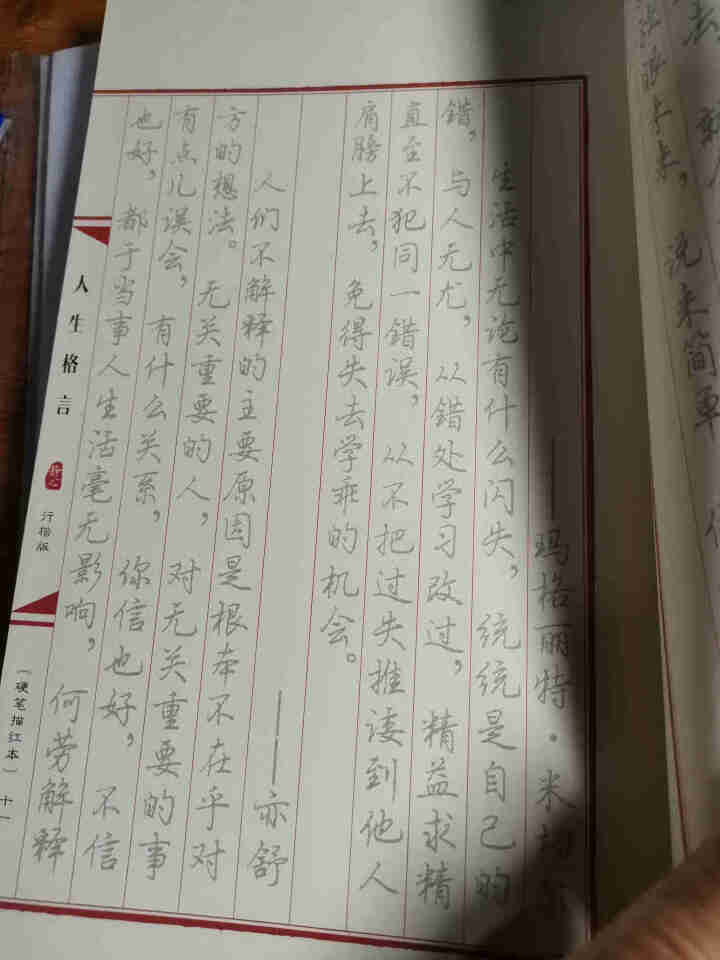 说来简单
——玛格丽特·米切尔
生活中无论有什么闪失，统统是自己的
错，与人无尤，从错处学习改过，精益求精
直至不犯同一错误，从不把过失推诿到他人
肩膀上去，免得失去学乖的机会。
——亦舒
人们不解释的主要原因是根本不在乎对
方的想法。无关重要的人，对无关重要的事
有点儿误会，有什么关系，你信也好，不信
也好，都于当事人生活毫无影响，何劳解释
人生格言
行楷版
（硬笔描红本）
十一